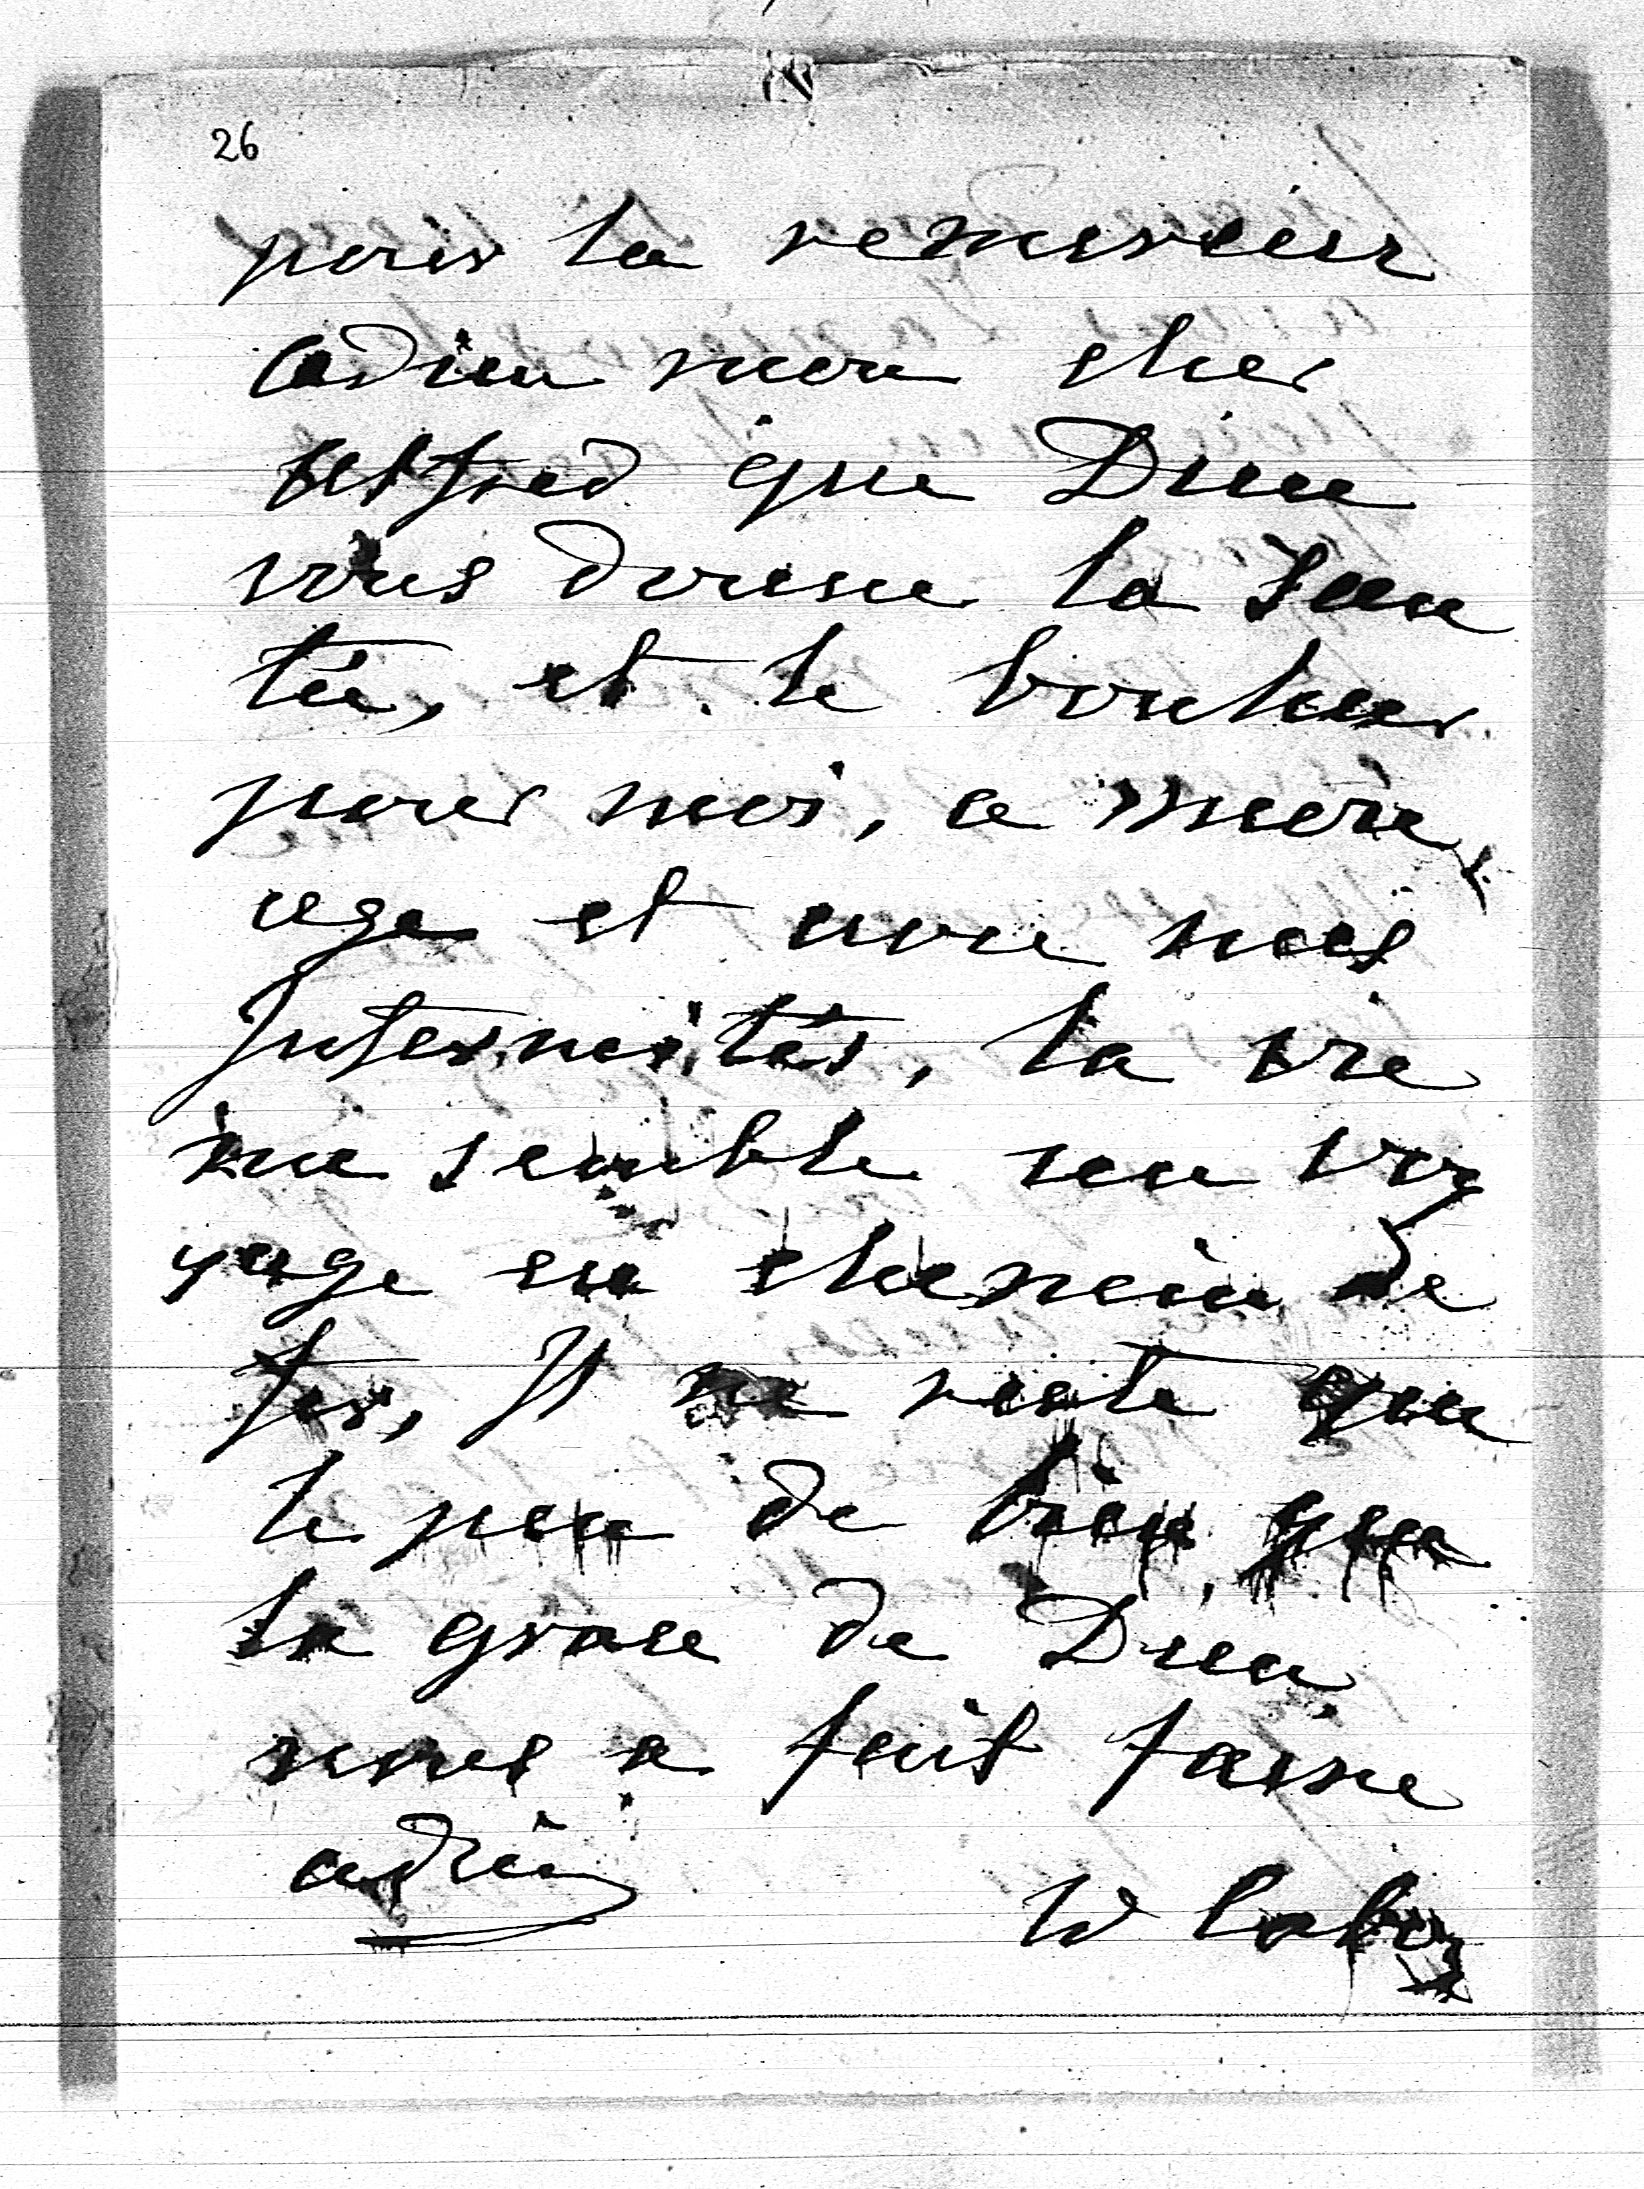 26
pour la remercier
adieu mon cher
que Dieu
vous donne la san
té, et le bonheur
pour moi, a mon
age et avec mes
Infermités, la vie
me semble un voy
yage en chemin de
fer, Il ne reste que
le peu de bien que
la grace de Dieu
nous a fait faire
adieu